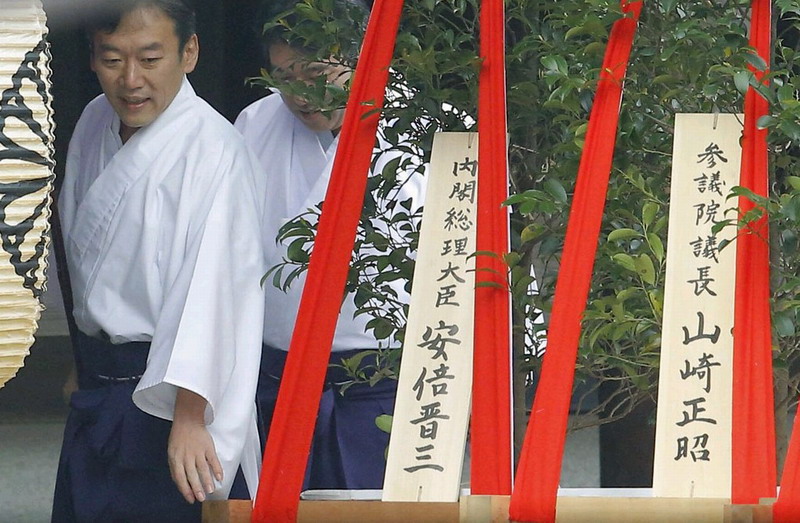 内閣総理大臣 安倍晋三
参議院議長 山崎正昭